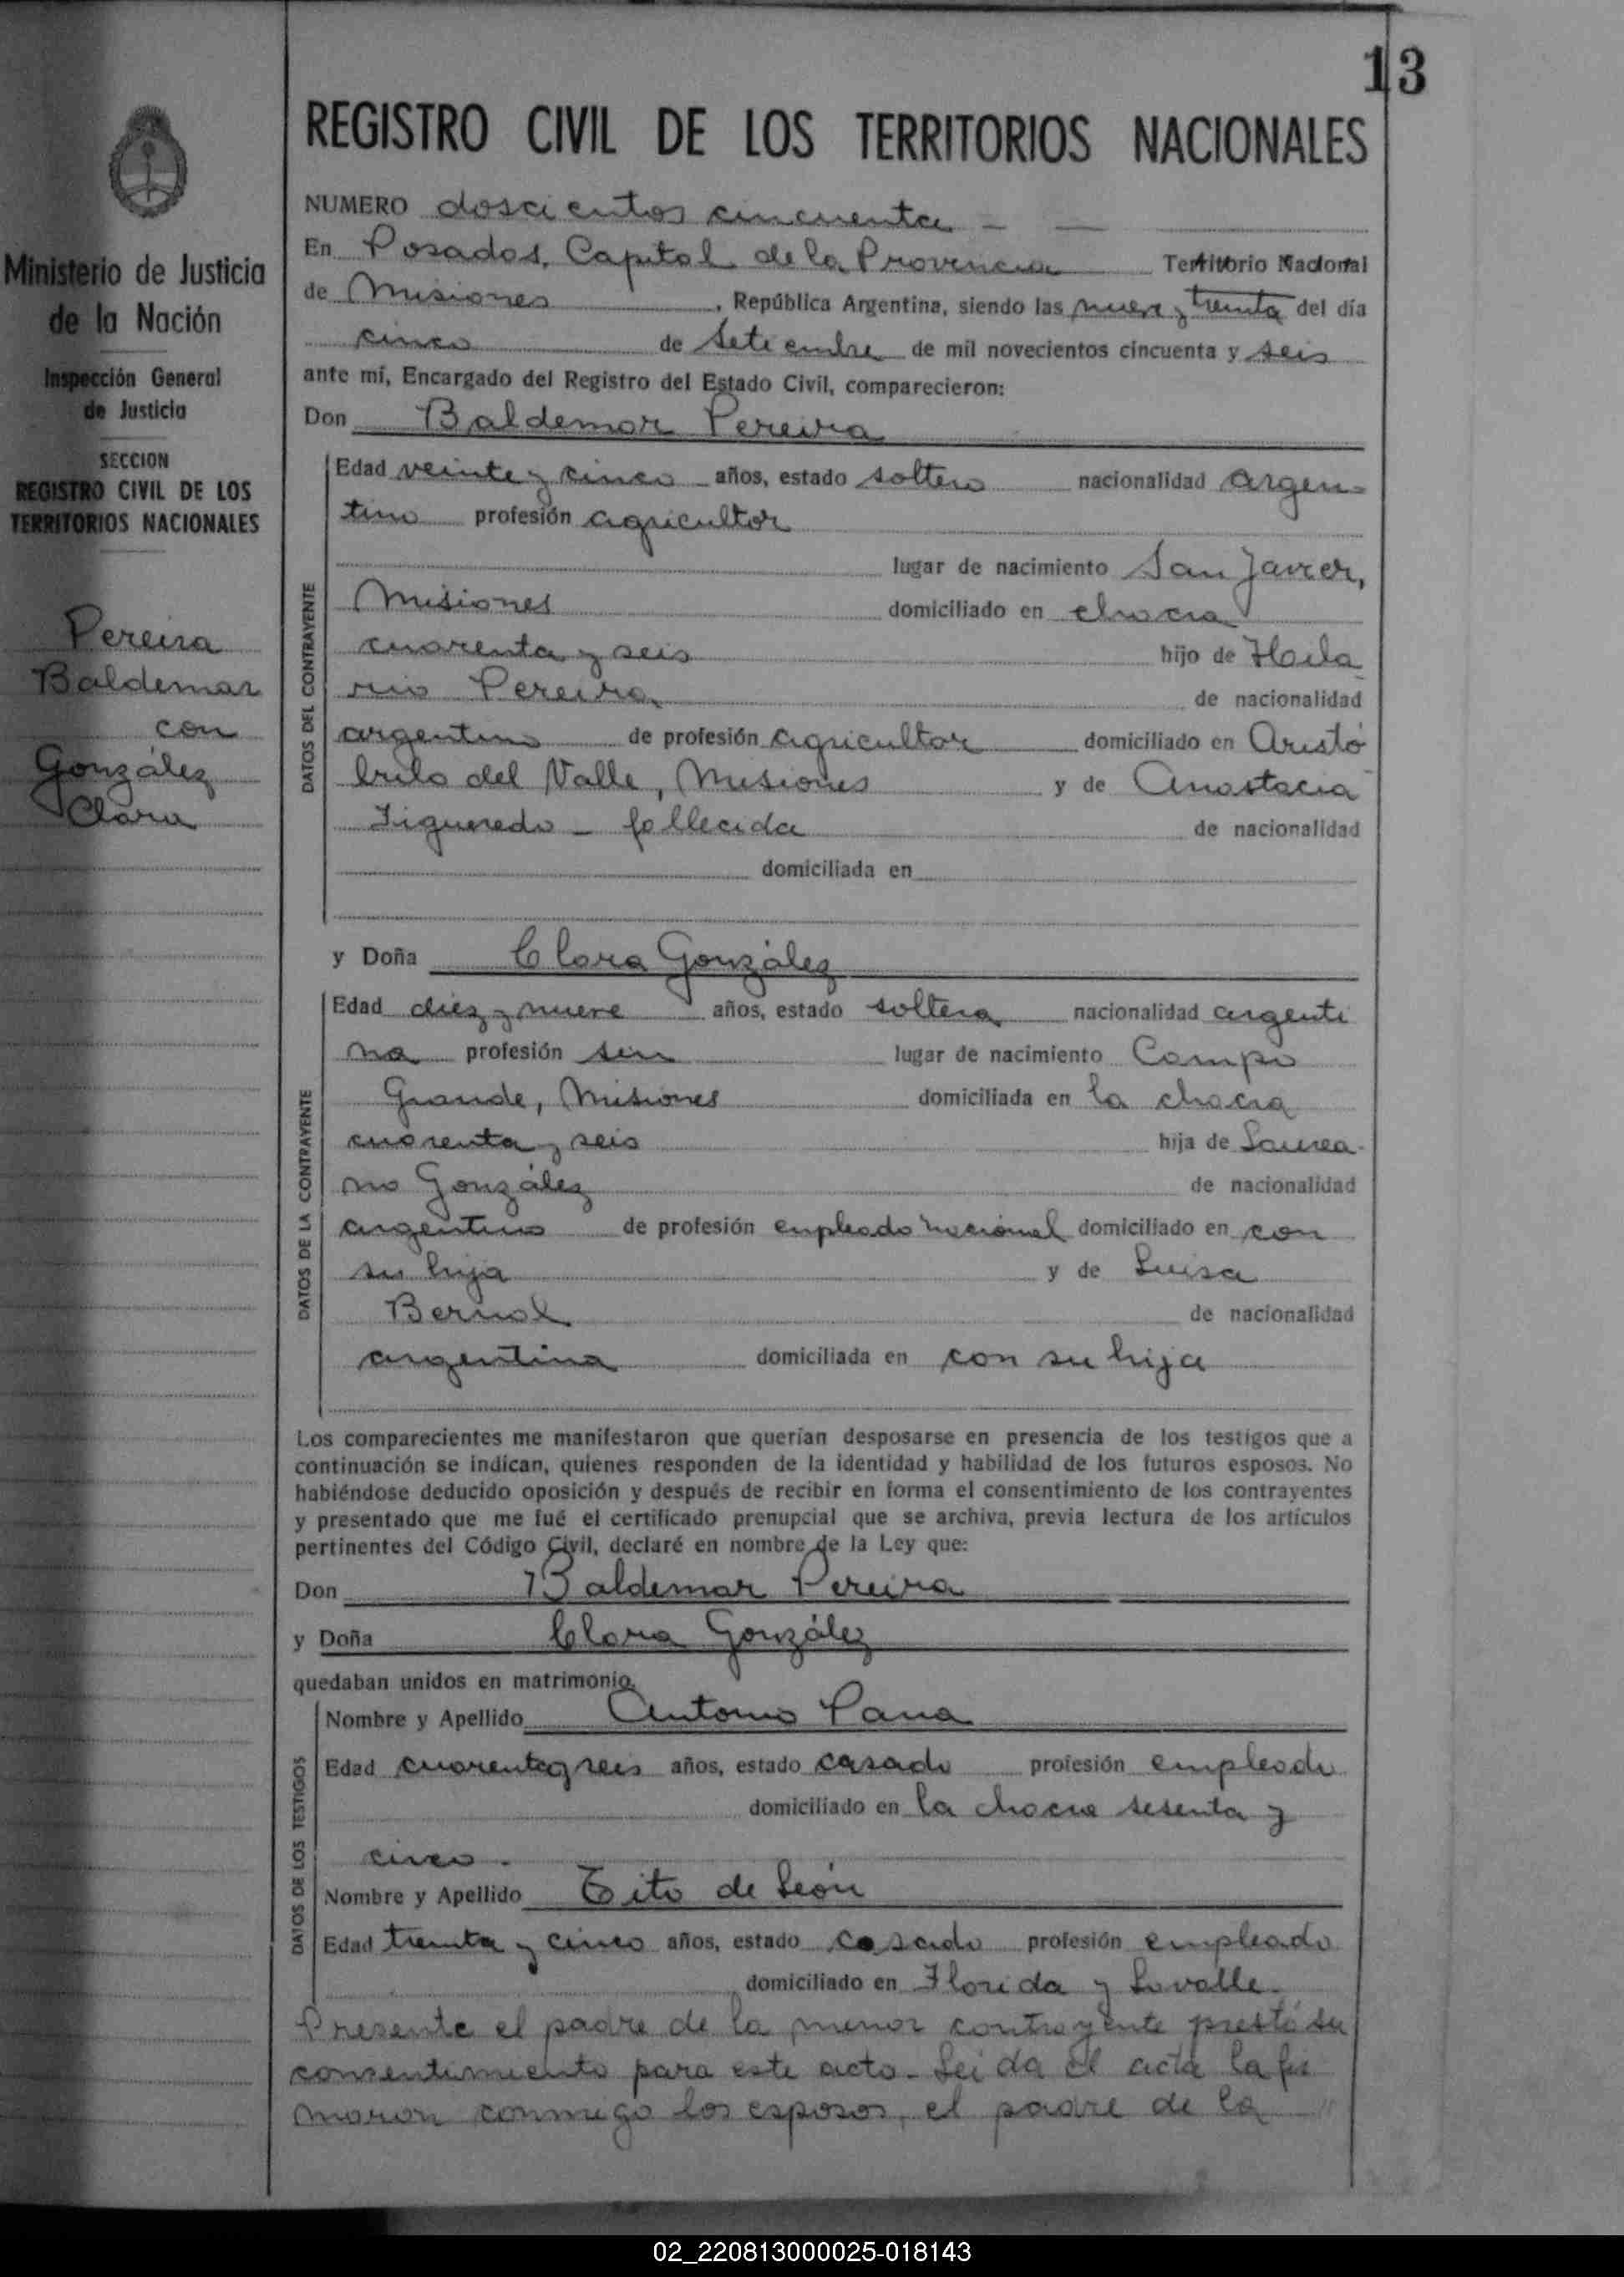 13
Ministerio de Justicia
de la Nación
Inspección General
de Justicia
SECCION
REGISTRO CIVIL DE LOS
TERRITORIOS NACIONALES
Pereira
Baldemar
con
González
Clara
REGISTRO CIVIL DE LOS TERRITORIOS NACIONALES
NUMERO doscientos cincuenta - —
En Posadas, Capital de la Provincia Territorio Nacional
de Misiones, República Argentina, siendo las nueve y treinta del día
cinco de Setiembre de mil novecientos cincuenta y seis
ante mí, Encargado del Registro del Estado Civil, comparecieron:
Don Baldemar Pereira
DATOS DEL CONTRAYENTE
Edad veinte y cinco años, estado soltero nacionalidad argen-
tino profesión agricultor
lugar de nacimiento San Javier,
Misiones domiciliado en chacra
cuarenta y seis hijo de Hila
rio Pereira de nacionalidad
argentino de profesión agricultor domiciliado en Aristó
bulo del Valle, Misiones y de Anastacia
Figueredo - fallecida de nacionalidad
domiciliada en
y Doña Clara González
DATOS DE LA CONTRAYENTE
Edad diez y nueve años, estado soltera nacionalidad argenti
na profesión sin lugar de nacimiento Campo
Grande, Misiones domiciliada en la chacra
cuarenta y seis hija de Laurea-
no González de nacionalidad
argentino de profesión empleado nacional domiciliado en con
su hija y de Luisa
Bernal de nacionalidad
argentina domiciliada en con su hija
Los comparecientes me manifestaron que querían desposarse en presencia de los testigos que a
continuación se indican, quienes responden de la identidad y habilidad de los futuros esposos. No
habiéndose deducido oposición y después de recibir en forma el consentimiento de los contrayentes
y presentado que me fué el certificado prenupcial que se archiva, previa lectura de los artículos
pertinentes del Código Civil, declaré en nombre de la Ley que:
Don Baldemar Pereira
y Doña Clara González
quedaban unidos en matrimonio.
DATOS DE LOS TESTIGOS
Nombre y Apellido Antonio
Edad cuarenta y seis años, estado casado profesión empleado
domiciliado en la chacra sesenta y
cinco.
Nombre y Apellido Tito de León
Edad treinta y cinco años, estado casado profesión empleado
domiciliado en Florida y Lavalle.
Presente el padre de la menor contrayente prestó su
consentimiento para este acto. Leida el acta la fir
maron conmigo los esposos, el padre de la
02_220813000025-018143